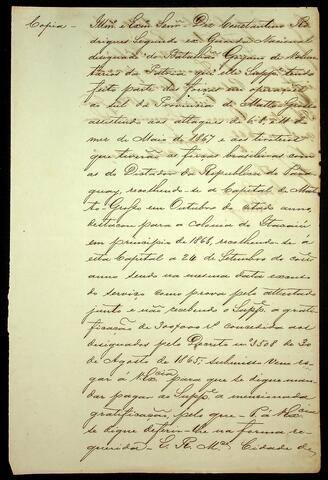 Copia - Illmo e Exmo Senr - Diz Constantino Ro
drigues Segundo ca Guarda Nacional
designado do Batalhão Goyano de Volun
tarios da Patria que elle Suppe tendo
feito parte das forças em operações
ao Sul da Provincia de Matto Grosso
assistindo aos ataques de 6.8. e 11 do
mez de Maio de 1867 e aos tiroteios
que tiverão as forças brasileiras com
as do Dictador da Republica do Para
guay, recolhendo-se a Capital de Mat
to Grosso em Outubro do citado anno,
destacou para a colonia do Itacaiú
em principios de 1868, recolhendo-se á
esta Capital a 24 de Setembro do corre
anno sendo na mesma data excuso
do serviço como prova pelo attestado
junto e não recebendo o Suppe a grati
ficação de 300$000 rs concedida aos
designados pelo Decreto nº 3508 de 30
de Agosto de 1865, submisso vem ro
gar á V. Excia para que se digne man
dar pagar ao Suppe a mencionada
gratificação, pelo que - P. á V. Excia
se digne deferir-lhe na forma re
querida - E. R. Mce Cidade de